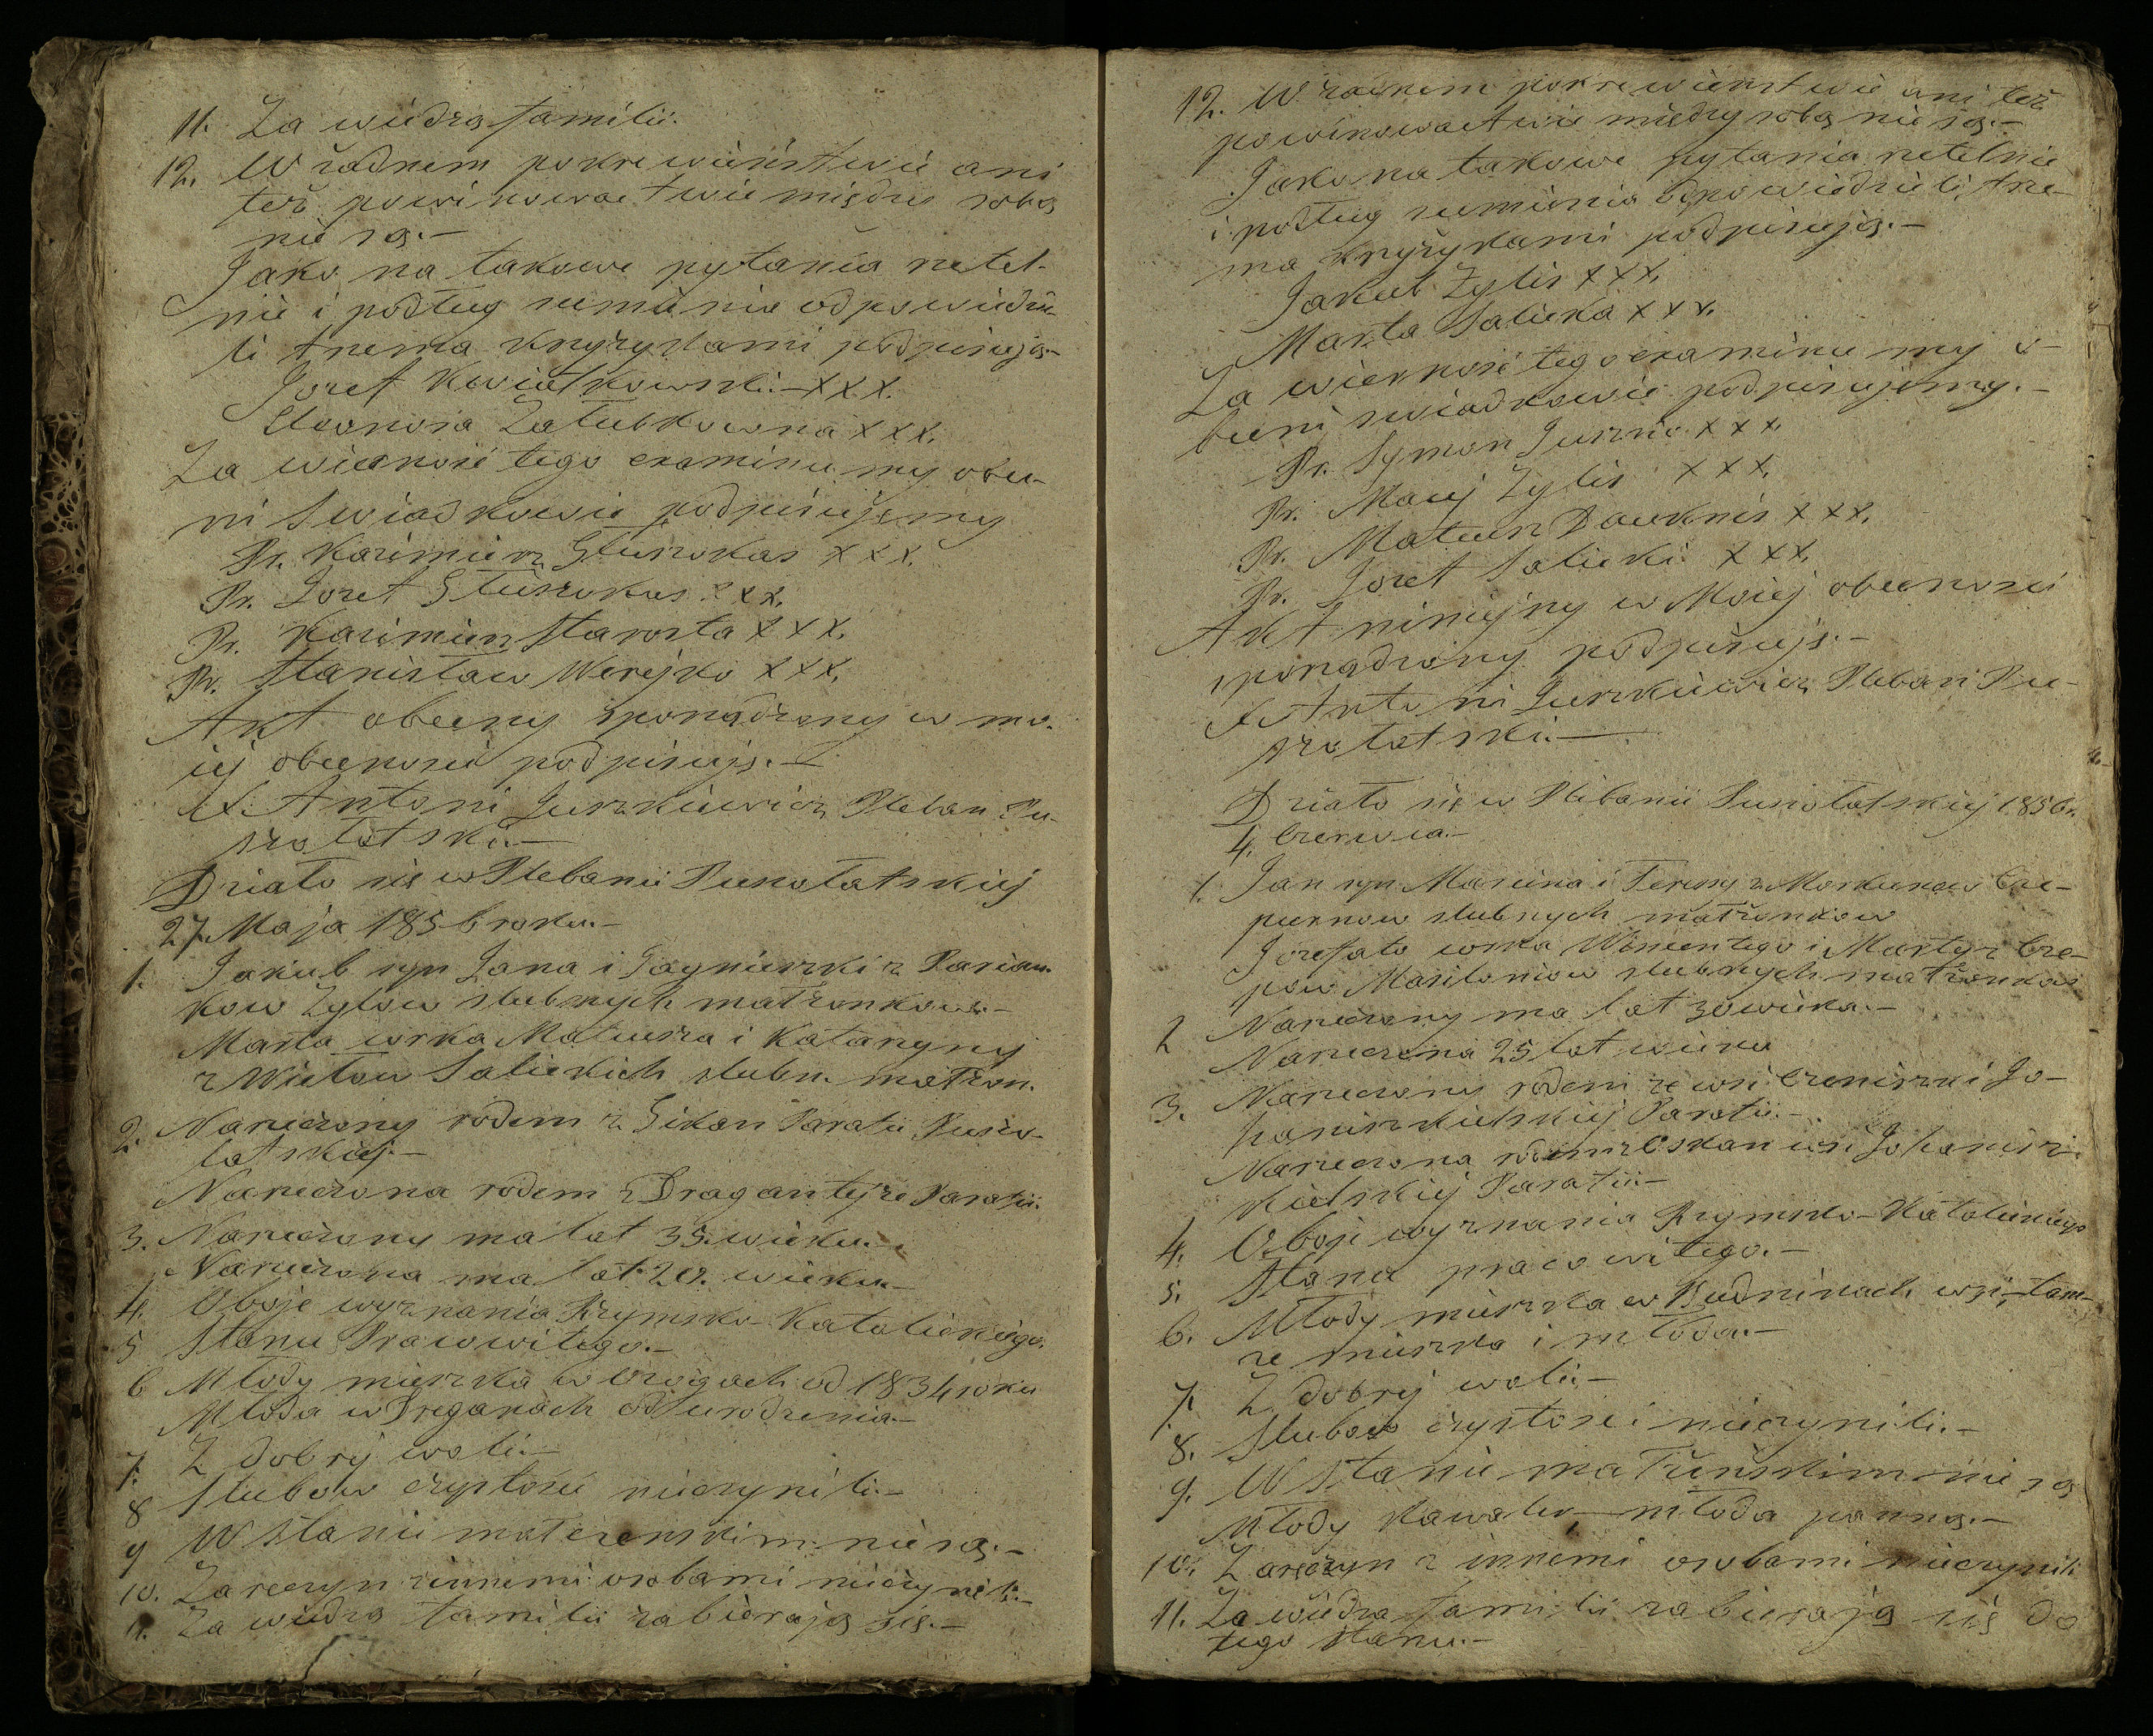 11. Za wiedzą familii.
12. W żadnem pokrewieństwie ani
też powinowactwie międze sobą
nie są.-
Jako na takowe pytania retel-
nie i podług sumienia odpowiedzie-
li trzema krzyżykami podpisują.-
Jozef Kwiatkowski.- x x x.
Eleonora Załubkowna x x x.
Za wiernosć tego examinu my obec-
ni Swiadkowie podpisujemy
Pr. Kazimierz x x x.
Pr. Jozef x x x.
Pr. Kazimierz Starosta x x x.
Pr. Stanisław Werejko x x x.
Akt obecny sporądzony w mo-
iej obecnosci podpisuję.-
X. Antoni Jurkiewicz Pleban Pu-
szołatski.-
Działo się w Plebanii Puszołatskiej
27. Maja 1856 roku.-
1. Jakub syn Jana i Jagnieszki z
kow Zylow slubnych małżonkow.-
Marta corka Mateusza i Katarzyny
z Wielow Salickich slubn. małżon.
2. Narzeczony rodem z Gikan Parafii Puszo-
łatskiej.-
Narzeczona rodem z Dragan tejże Parafii.
3. Narzeczony ma lat 35. wieku.-
Narzeczona ma lat 20. wieku.-
4. Oboje wyznania Rzymsko-Katolickiego.
5 Stanu Pracowitego.-
6 Młody mieszka w od 1834 roku
Młoda w Dreganach od urodzenia.-
7. Z dobrej woli.-
8 Slubow czystosci nieczynili.-
9 W stanie małżenskim nie są.-
10. Zaręczyn z innemi osobami nieczynili.-
11. Za wiedzą familii zabierają się.-
12. W żadnem pokrewienstwie ani też
powinowactwie między sobą nie są.-
Jako na takowe pytania retelnie
i podług sumienia odpowiedzieli, trze-
ma krzyżykami podpisują.-
Jakub Zylis x x x.
Marta Salicka x x x.
Za wiernosć tego examinu my o-
becni swiadkowie podpisujemy.-
Pr. Symon x x x
Pr. Maciej Zylis x x x.
Pr. Mateusz Dauknis x x x.
Pr. Jozef Salicki x x x.
Akt niniejszy w Moiej obecnosci
sporądzony podpisuję.-
X Antoni Jurkiewicz Pleban Pu-
szołatski.-
Działo się w Plebanii Puszołatskiej 1856 r.
4. Czerwca.-
1. Jan syn Marcina i Teresy z Morkunow Cze-
purnow slubnych małżonkow
Jozefata corka Wincentego i Marty z Cze-
pow slubnych małżonkow
2 Narzeczony ma lat 30 wieku.-
Narzeczona 25 lat wieku
3. Narzeczony rodem ze wsi Jo-
haniszkielskiej Parafii.-
Narzeczona rodem z wsi Johanisz-
kielskiej Parafii.-
4. Oboje wyznania Rzymsko-Katolickiego
5. Stanu pracowitego.-
6. Młody mieszka w Rudninach wsi, tam-
że mieszka i młoda.-
7. Z dobrej woli.-
8. Slubow czystosci nieczynili.-
9. W Stanie małżenskim nie są
Młody kawaler, młoda panna.-
10. Zaręczyn z innemi osobami nieczynili
11. Za wiedzą familii zabierają się do
tego stanu.-